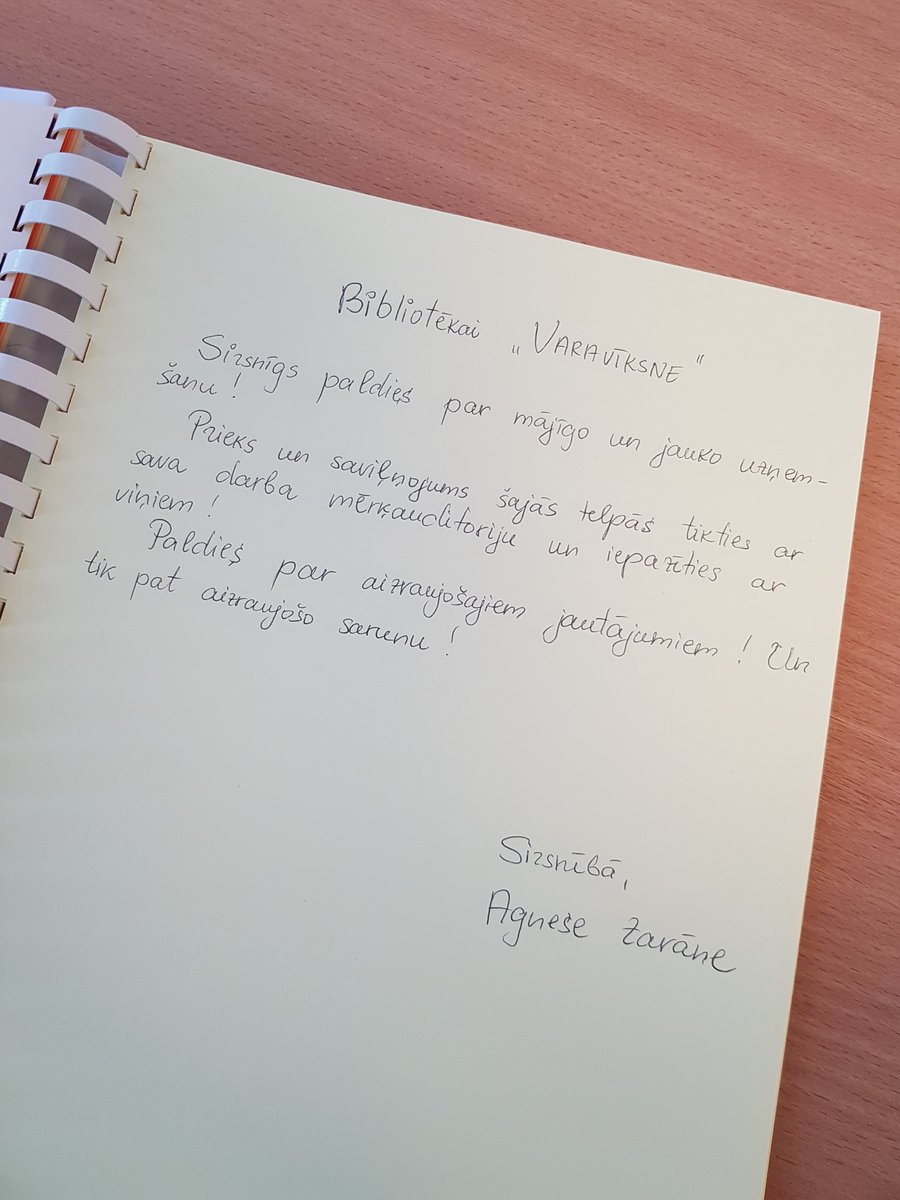 Bibliotēkai „VARAVĪKSNE"
Sirsnīgs paldies par mājīgo un jauko uzņem-
šanu!
Prieks un saviļņojums šajās telpās tikties ar
sava darba mērķauditoriju un iepazīties ar
viņiem!
Paldies par aizraujošajiem jautājumiem! Un
tik pat aizraujošo sarunu!
Sirsnībā,
Agnese Zarāne